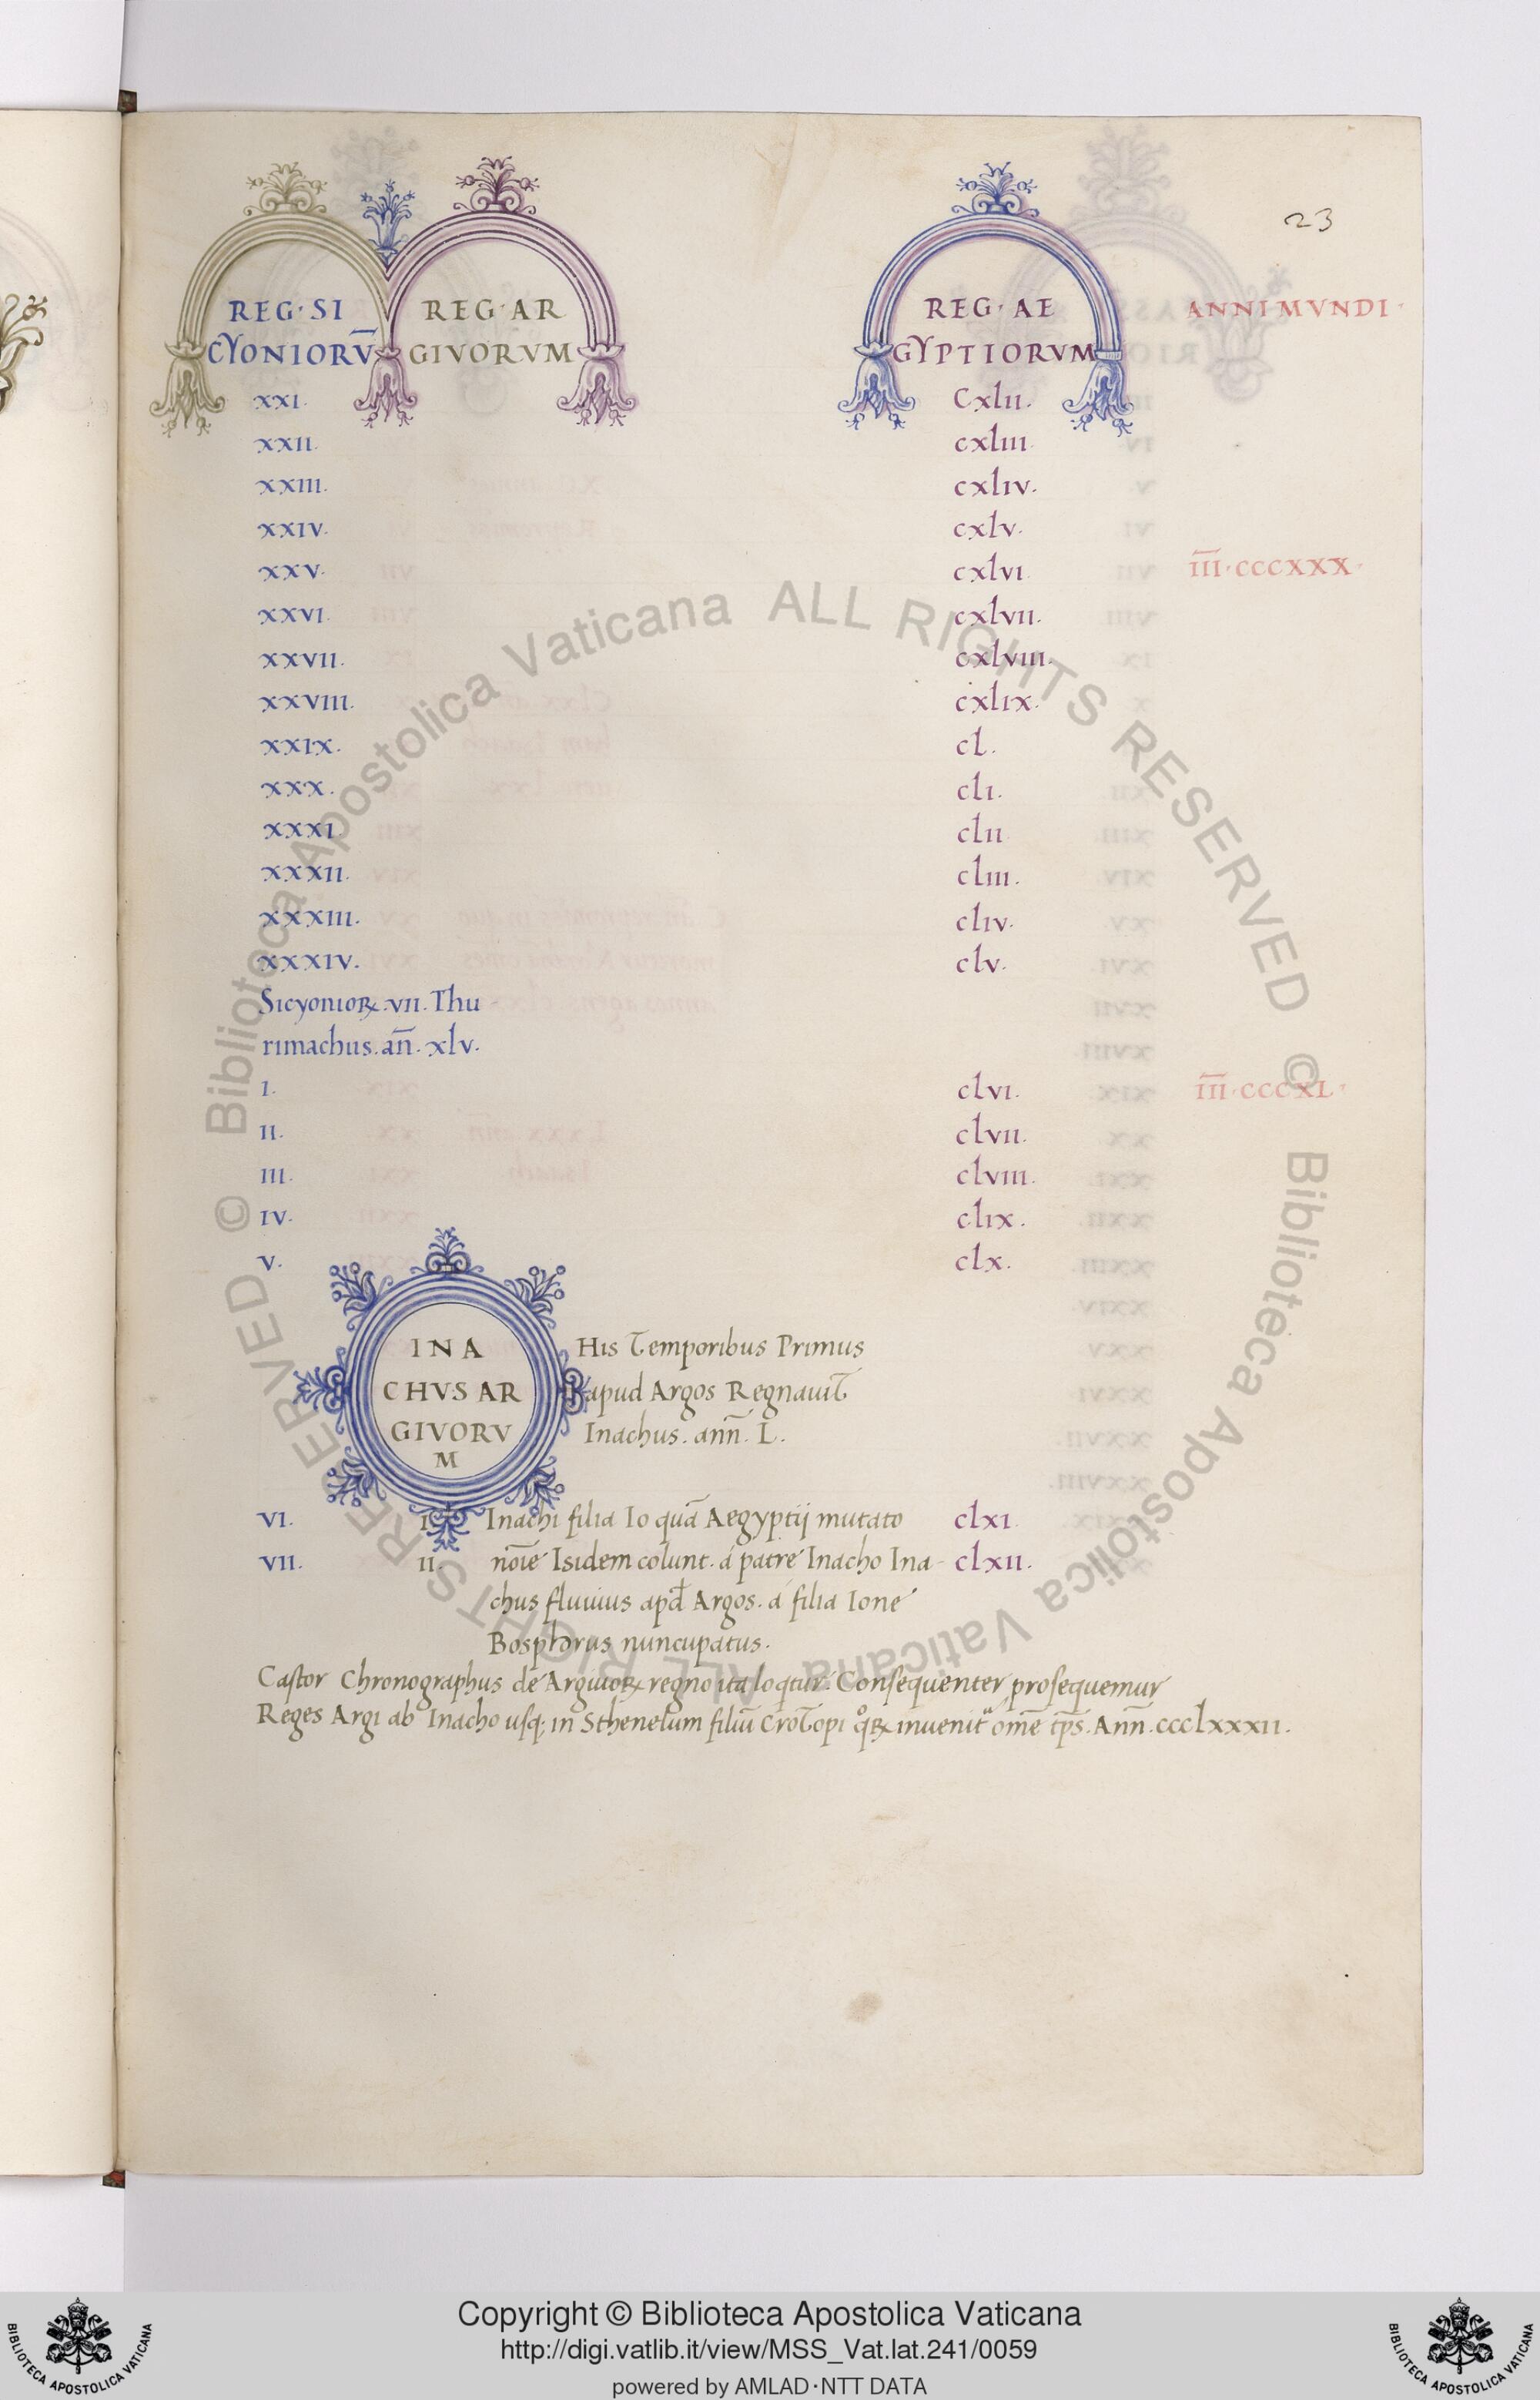 23
REG·SI REG·AR REG·AE ANNI MVNDI·
CYONIORV̅ GIVORVM GYPTIORVM
XXI. Cxlii.
XXII. cxliii.
XXIII. cxliv.
XXIV. cxlv.
XXV. cxlvi. I̅I̅I̅·CCCXXX·
XXVI. cxlvii.
XXVII. cxlviii.
XXVIII. cxlix.
XXIX. cl.
XXX. cli.
XXXI. clii.
XXXII. cliii.
XXXIII. cliv.
XXXIV. clv.
Sicyonioꝝ. vii. Thu-
rimachus. an̅. xlv.
I. clvi. I̅I̅I̅·CCCXL·
II. clvii.
III. clviii.
IV. clix.
V. clx.
INA His Temporibus Primus
CHVS AR apud Argos Regnauit
GIVORV Inachus. ann̅. L.
M
VI. I. Inachi filia Io quā Aegyptij mutato clxi.
VII. II. noīe Isidem colunt. á patre Inacho Ina- clxii.
chus fluuius apđ Argos. á filia Ione
Bosphorus nuncupatus.
Castor Chronographus de Argiuoꝝ regno ita loqtur. Consequenter prosequemur
Reges Argi ab Inacho usq; in Sthenelum filiū Crotopi qͦꝝ inuenit omē tp̅s. Ann̅. ccclxxxii.
© Biblioteca Apostolica Vaticana ALL RIGHTS RESERVED
© Biblioteca Apostolica Vaticana ALL RIGHTS RESERVED
Copyright © Biblioteca Apostolica Vaticana
http://digi.vatlib.it/view/MSS_Vat.lat.241/0059
powered by AMLAD·NTT DATA
BIBLIOTECA APOSTOLICA VATICANA
BIBLIOTECA APOSTOLICA VATICANA